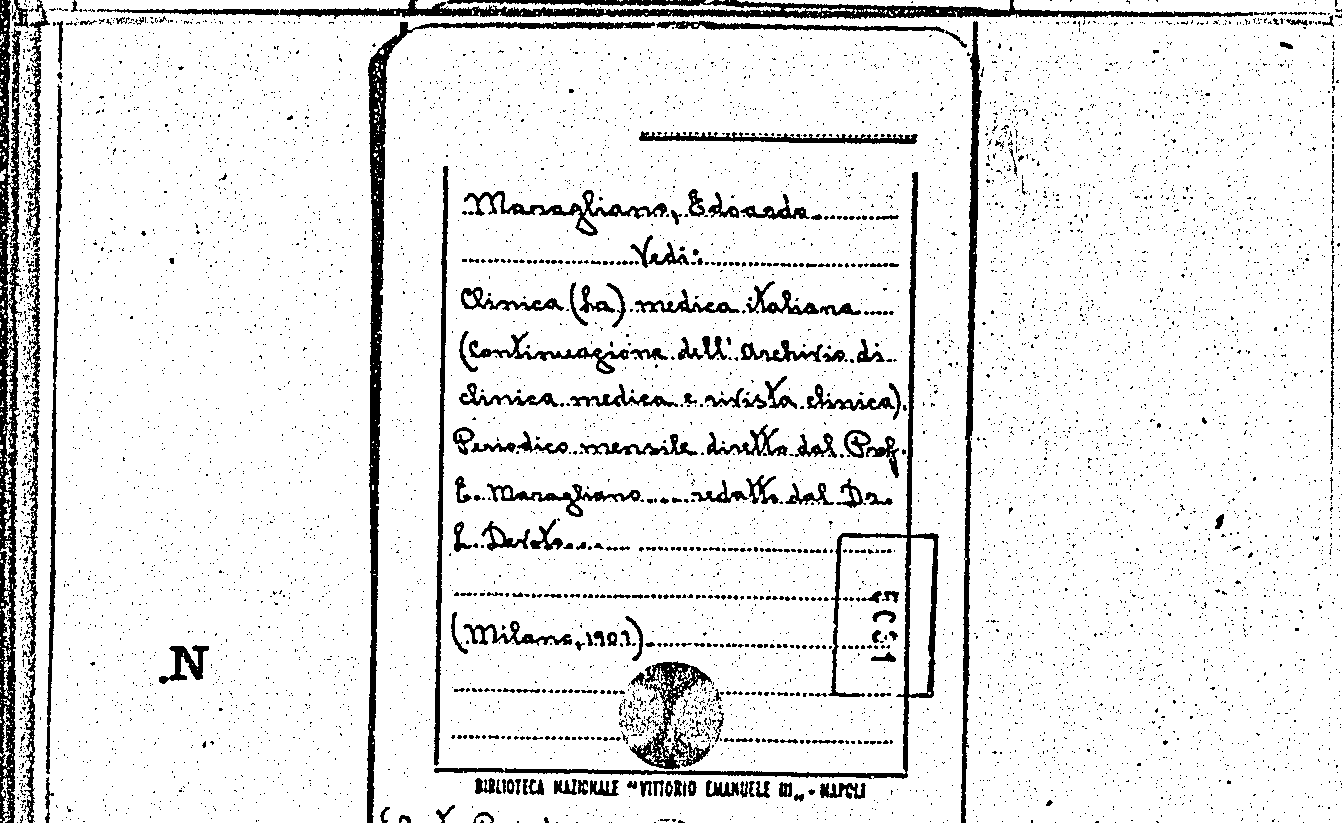 Maragliano, Edoardo
Vedi:
Clinica (La) medica italiana
(Continuazione dell' Archivio di
clinica medica e rivista clinica).
Periodico mensile diretto dal Prof.
E. Maragliano.... redatto dal Dr.
L. Devoto....
(Milano, 1907)
EC31
.N
BIBLIOTECA NAZIONALE "VITTORIO EMANUELE III„ - NAPOLI